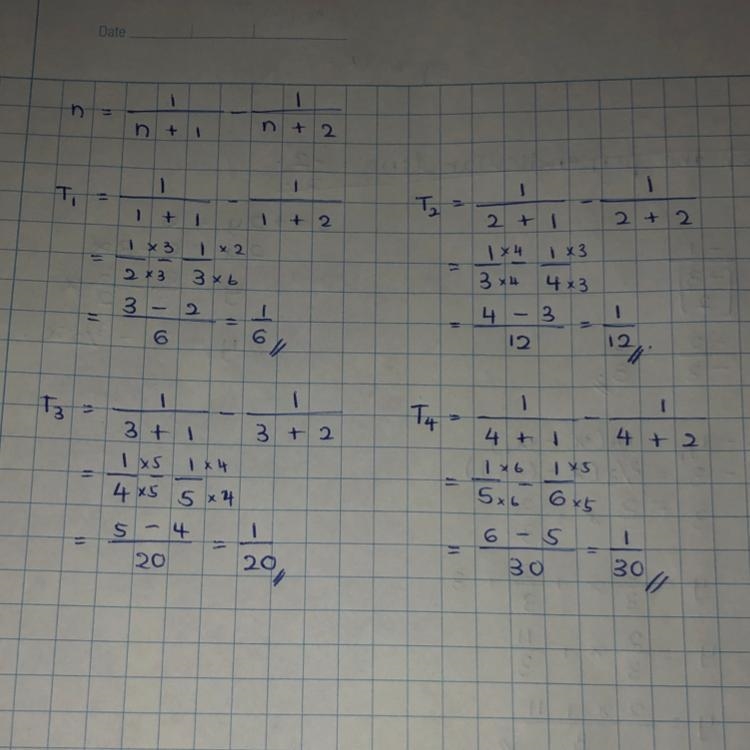 Date
n = 1/(n + 1) - 1/(n + 2)
T₁ = 1/(1 + 1) - 1/(1 + 2)
= 1/2 ×3/×3 - 1/3 ×2/×6
= (3 - 2)/6 = 1/6 //
T₂ = 1/(2 + 1) - 1/(2 + 2)
= 1/3 ×4/×4 - 1/4 ×3/×3
= (4 - 3)/12 = 1/12 //.
T₃ = 1/(3 + 1) - 1/(3 + 2)
= 1/4 ×5/×5 - 1/5 ×4/×4
= (5 - 4)/20 = 1/20 //
T₄ = 1/(4 + 1) - 1/(4 + 2)
= 1/5 ×6/×6 - 1/6 ×5/×5
= (6 - 5)/30 = 1/30 //